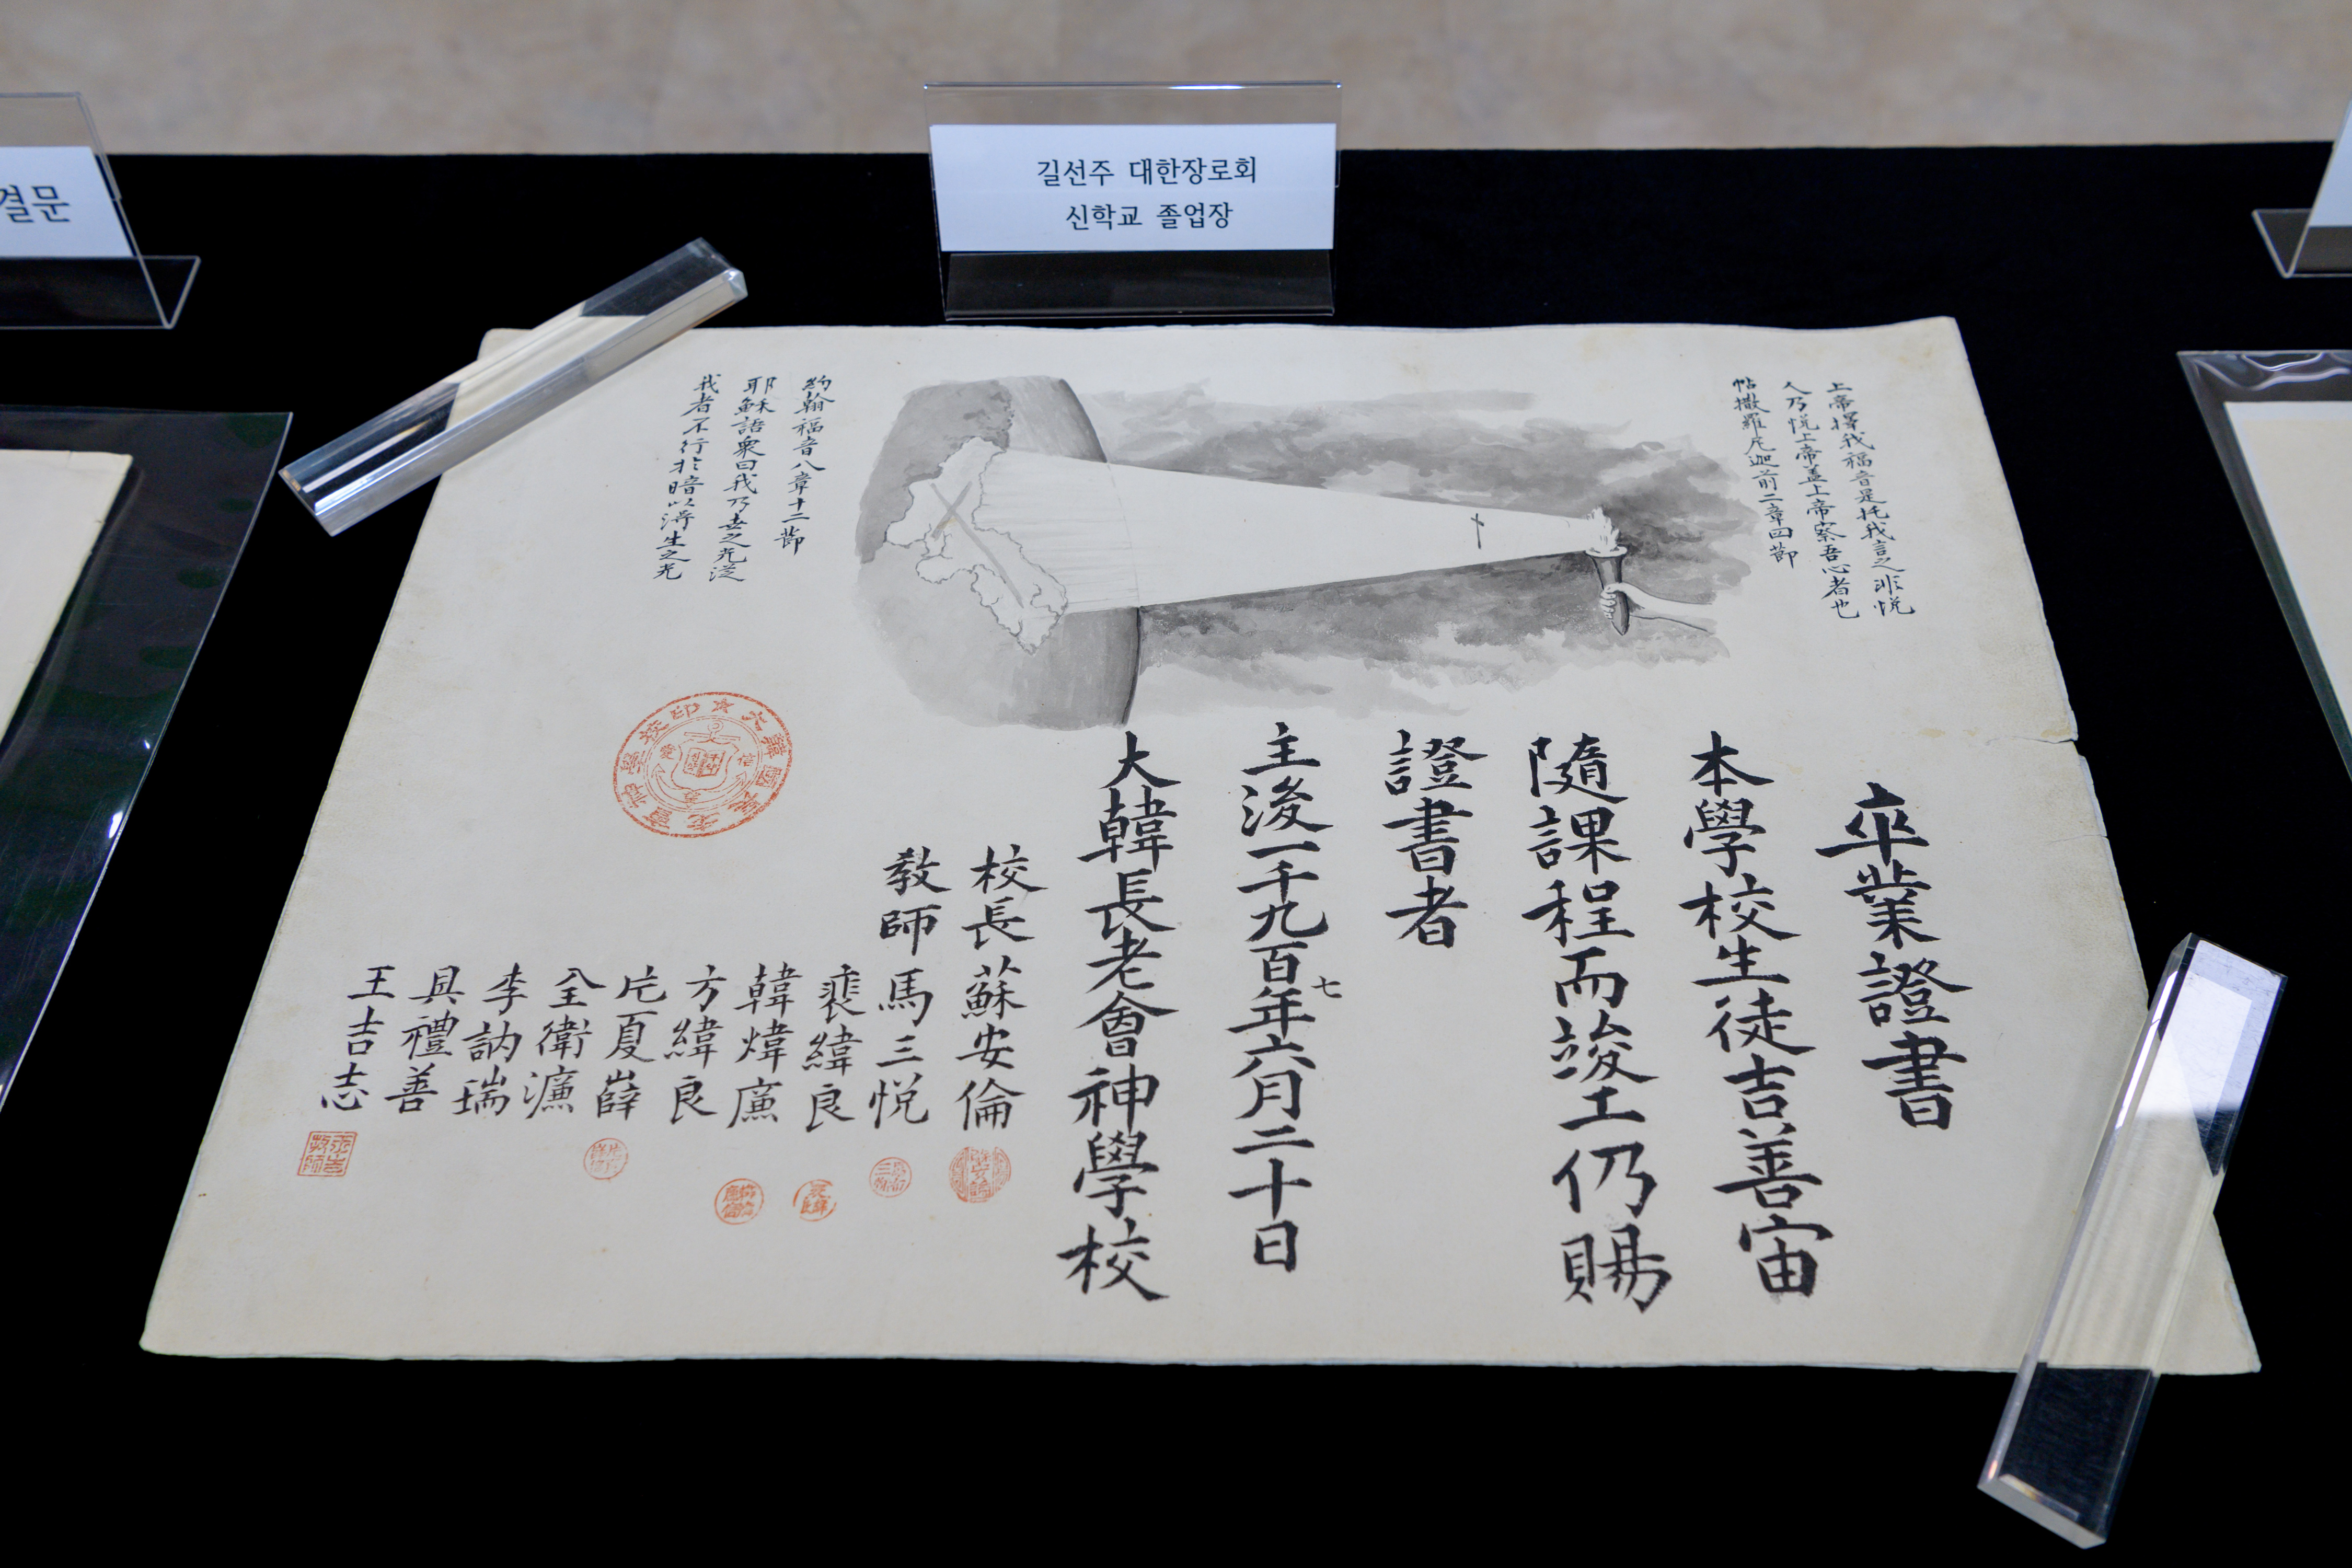 결문
길선주 대한장로회
신학교 졸업장
上帝擇我福音是托我言之非悦
人乃悦上帝盖上帝察吾心者也
帖撒羅尼迦前二章四節
約翰福音八章十二節
耶穌語衆曰我乃世之光從
我者不行於暗以淂生之光
卒業證書
本學校生徒吉善宙
隨課程而竣工仍賜
證書者
主後一千九百七年六月二十日
大韓長老會神學校
校長 蘇安倫
教師 馬三悦
裵緯良
韓煒廉
方緯良
片夏薛
全衛濂
李訥瑞
具禮善
王吉志